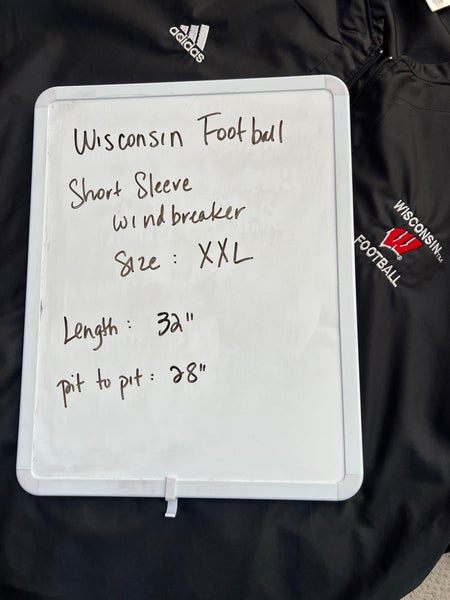 adidas
Wisconsin Football
Short Sleeve
windbreaker
Size : XXL
Length : 32"
pit to pit : 28"
WISCONSIN™
W
FOOTBALL